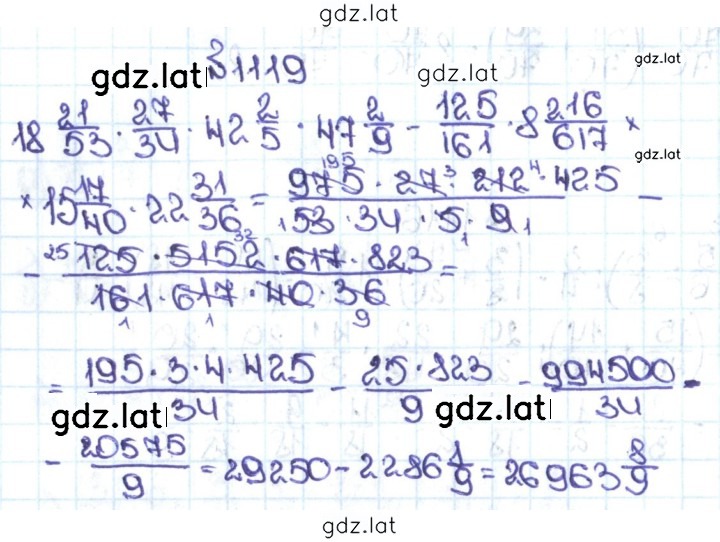 gdz.lat
gdz.lat №1119 gdz.lat gdz.lat
18 21/53 · 27/34 · 42 2/5 · 47 2/9 - 125/161 · 8 216/617 ×
gdz.lat
× 15 17/40 · 22 31/36 = 975 · 27 · 212 · 425 / 53 · 34 · 5 · 9 -
195 3 4 1 1 1
- 125 · 5152 · 617 · 823 / 161 · 617 · 40 · 36 =
25 32 1 1 9
= 195 · 3 · 4 · 425 / 34 - 25 · 823 / 9 - 994500 / 34 -
gdz.lat gdz.lat
- 20575 / 9 = 29250 - 2286 1/9 = 26963 8/9
gdz.lat